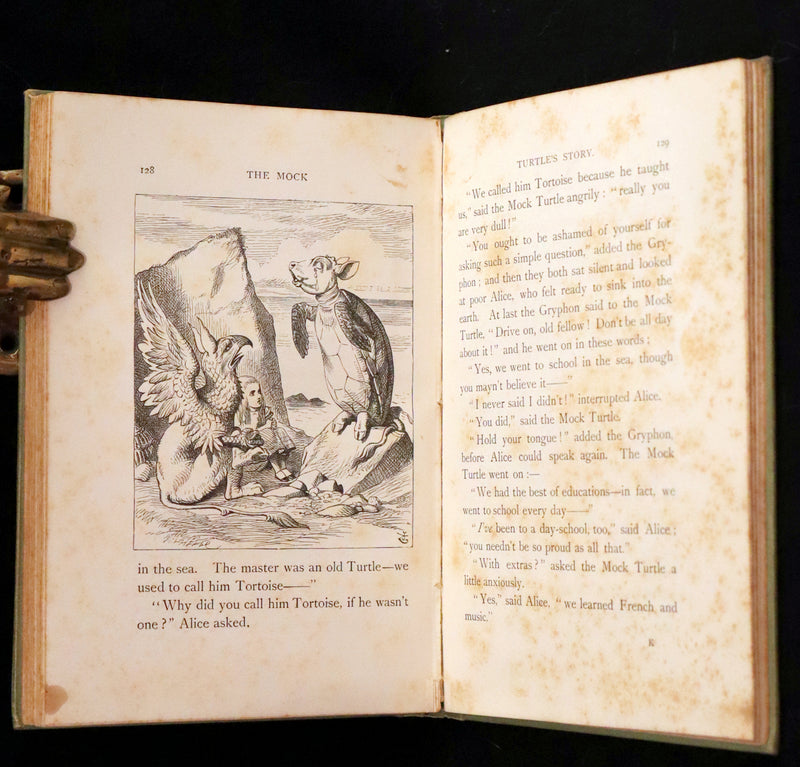 128
THE MOCK
in the sea. The master was an old Turtle—we
used to call him Tortoise——"
"Why did you call him Tortoise, if he wasn't
one?" Alice asked.
TURTLE'S STORY.
129
"We called him Tortoise because he taught
us," said the Mock Turtle angrily: "really you
are very dull!"
"You ought to be ashamed of yourself for
asking such a simple question," added the Gry-
phon; and then they both sat silent and looked
at poor Alice, who felt ready to sink into the
earth. At last the Gryphon said to the Mock
Turtle, "Drive on, old fellow! Don't be all day
about it!" and he went on in these words:
"Yes, we went to school in the sea, though
you mayn't believe it——"
"I never said I didn't!" interrupted Alice.
"You did," said the Mock Turtle.
"Hold your tongue!" added the Gryphon,
before Alice could speak again. The Mock
Turtle went on:—
"We had the best of educations—in fact, we
went to school every day——"
"I've been to a day-school, too," said Alice;
"you needn't be so proud as all that."
"With extras?" asked the Mock Turtle a
little anxiously.
"Yes," said Alice, "we learned French and
music."
K